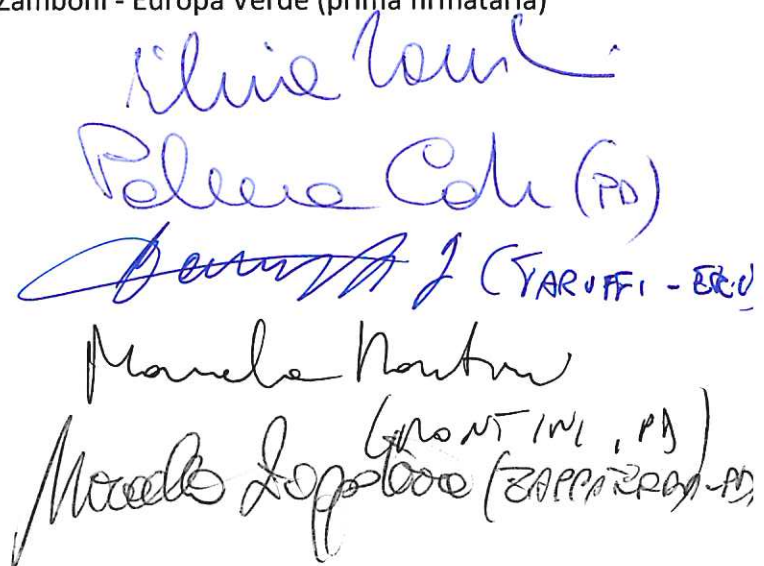 Zamboni - Europa Verde (prima firmataria)
Silvia Zamboni
Palma Costi (PD)
(TARUFFI - ERCV
Manuela Rontini
(RONTINI, PD)
Marcella Zappaterra (ZAPPATERRA-PD)